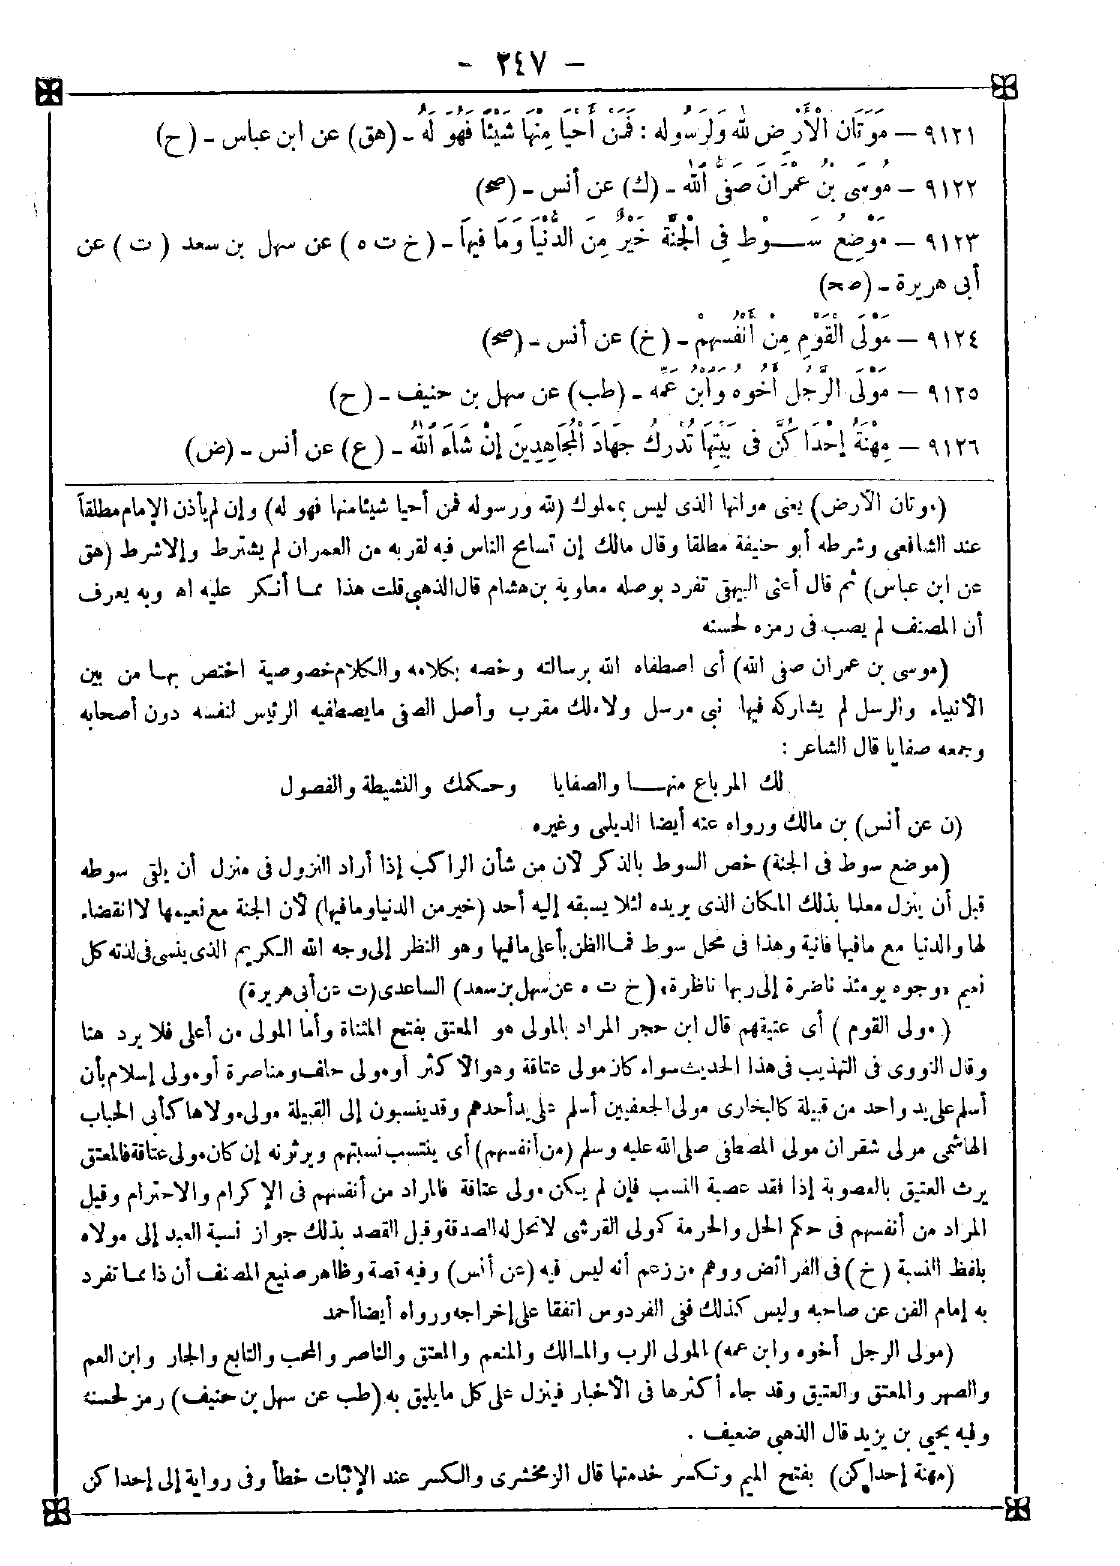 - ٢٤٧ -
٩١٢١ — مَوَتَانُ الْأَرْضِ للهِ وَلِرَسُولِهِ : فَمَنْ أَحْيَا مِنْهَا شَيْئًا فَهُوَ لَهُ - (هق) عن ابن عباس - (ح)
٩١٢٢ — مُوسَى بْنُ عِمْرَانَ صَفِىُّ اللهِ - (ك) عن أنس - (صح)
٩١٢٣ — مَوْضِعُ سَوْطٍ فِى الْجَنَّةِ خَيْرٌ مِنَ الدُّنْيَا وَمَا فِيهَا - (خ ت ه) عن سهل بن سعد (ت) عن
أبى هريرة - (صح)
٩١٢٤ — مَوْلَى الْقَوْمِ مِنْ أَنْفُسِهِمْ - (خ) عن أنس - (صح)
٩١٢٥ — مَوْلَى الرَّجُلِ أَخُوهُ وَابْنُ عَمِّهِ - (طب) عن سهل بن حنيف - (ح)
٩١٢٦ — مِهْنَةُ إِحْدَاكُنَّ فِى بَيْتِهَا تُدْرِكُ جِهَادَ الْمُجَاهِدِينَ إِنْ شَاءَ اللهُ - (ع) عن أنس - (ض)
(موتان الأرض) يعنى مواتها الذى ليس بمملوك (لله ورسوله فمن أحيا شيئا منها فهو له) وإن لم يأذن الإمام مطلقا
عند الشافعى وشرطه أبو حنيفة مطلقا وقال مالك إن تسامح الناس فيه لقربه من العمران لم يشترط وإلا شرط (هق
عن ابن عباس) ثم قال أعنى البيهقى تفرد بوصله معاوية بن هشام قال الذهبى قلت هذا مما أنكر عليه اه وبه يعرف
أن المصنف لم يصب فى رمزه لحسنه
(موسى بن عمران صفى الله) أى اصطفاه الله برسالته وخصه بكلامه والكلام خصوصية اختص بها من بين
الأنبياء والرسل لم يشاركه فيها نبى مرسل ولا ملك مقرب وأصل الصفى ما يصطفيه الرئيس لنفسه دون أصحابه
وجمعه صفايا قال الشاعر :
لك المرباع منها والصفايا وحكمك والنشيطة والفصول
(ن عن أنس) بن مالك ورواه عنه أيضا الديلمى وغيره
(موضع سوط فى الجنة) خص السوط بالذكر لأن من شأن الراكب إذا أراد النزول فى منزل أن يلقى سوطه
قبل أن ينزل معلما بذلك المكان الذى يريده لئلا يسبقه إليه أحد (خير من الدنيا وما فيها) لأن الجنة مع نعيمها لا انقضاء
لها والدنيا مع ما فيها فانية وهذا فى محل سوط فما الظن بأعلى ما فيها وهو النظر إلى وجه الله الكريم الذى ينسى فى لذته كل
نعيم «وجوه يومئذ ناضرة إلى ربها ناظرة» (خ ت ه عن سهل بن سعد) الساعدى (ت عن أبى هريرة)
(مولى القوم) أى عتيقهم قال ابن حجر المراد بالمولى هو المعتق بفتح المثناة وأما المولى من أعلى فلا يرد هنا
وقال النووى فى التهذيب فى هذا الحديث سواء كان مولى عتاقة وهو الأكثر أو مولى حلف ومناصرة أو مولى إسلام بأن
أسلم على يد واحد من قبيلة كالبخارى مولى الجعفيين أسلم على يد أحدهم وقد ينسبون إلى القبيلة مولى مولاها كأبى الحباب
الهاشمى مولى شقران مولى المصطفى صلى الله عليه وسلم (من أنفسهم) أى ينتسب نسبتهم ويرثونه إن كان مولى عتاقة فالمعتق
يرث العتيق بالعصوبة إذا فقد عصبة النسب فإن لم يكن مولى عتاقة فالمراد من أنفسهم فى الإكرام والاحترام وقيل
المراد من أنفسهم فى حكم الحل والحرمة كمولى القرشى لا تحل له الصدقة وقيل القصد بذلك جواز نسبة العبد إلى مولاه
بلفظ النسبة (خ) فى الفرائض ووهم من زعم أنه ليس فيه (عن أنس) وفيه قصة وظاهر صنيع المصنف أن ذا مما تفرد
به إمام الفن عن صاحبه وليس كذلك ففى الفردوس اتفقا على إخراجه ورواه أيضا أحمد
(مولى الرجل أخوه وابن عمه) المولى الرب والمالك والمنعم والمعتق والناصر والمحب والتابع والجار وابن العم
والصهر والمعتق والعتيق وقد جاء أكثرها فى الأخبار فينزل على كل ما يليق به (طب عن سهل بن حنيف) رمز لحسنه
وفيه يحيى بن يزيد قال الذهبى ضعيف .
(مهنة إحداكن) بفتح الميم وتكسر خدمتها قال الزمخشرى والكسر عند الإثبات خطأ وفى رواية إلى إحداكن